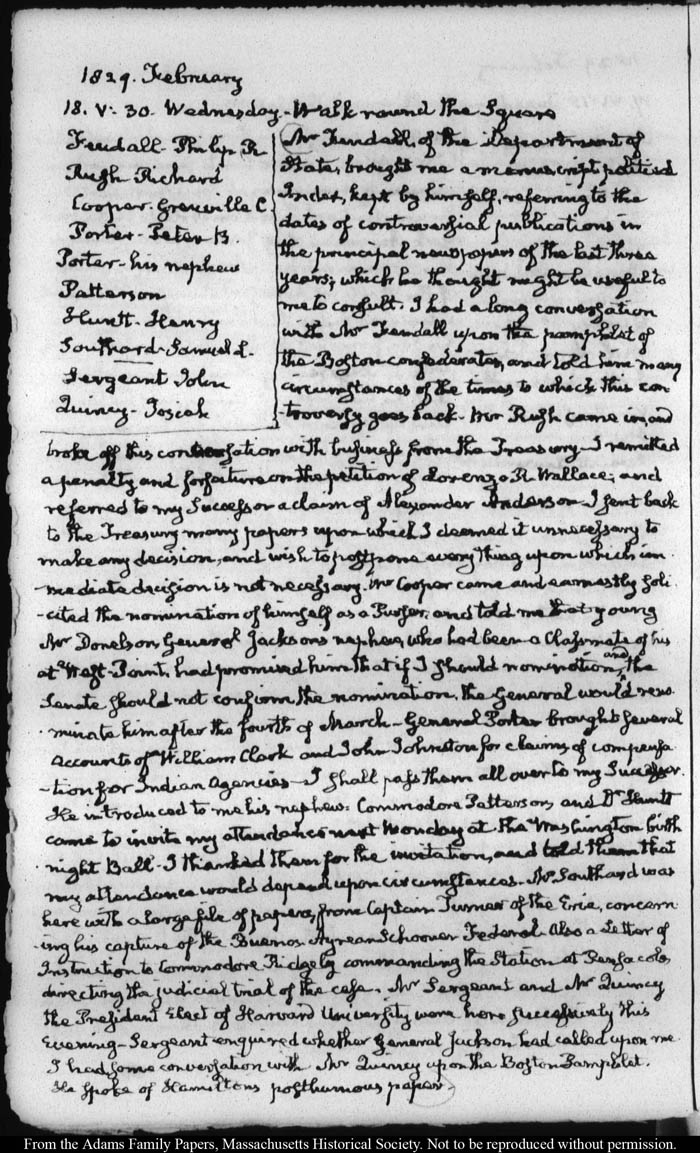 1829. February
18. V: 30. Wednesday. Walk round the Square
Fendall. Philip R
Rush Richard
Cooper. Grenville C
Porter. Peter B.
Porter - his nephew
Patterson
Huntt. Henry
Southard. Samuel L.
Sergeant John
Quincy. Josiah
Mr Fendall, of the Department of
State, brought me a manuscript political
Index, kept by himself, referring to the
dates of controversial publications in
the principal newspapers of the last three
years; which he thought might be useful to
me to consult. I had a long conversation
with Mr Fendall upon the pamphlet of
the Boston confederates, and told him many
circumstances of the times to which this con
-troversy goes back. Mr Rush came in, and
broke off this conversation with business from the Treasury. I remitted
a penalty and forfeiture on the petition of Lorenzo R Wallace; and
referred to my Successor a claim of Alexander Anderson. I sent back
to the Treasury many papers upon which I deemed it unnecessary to
make any decision, and wish to postpone every thing upon which im
-mediate decision is not necessary. Mr Cooper came and earnestly soli
-cited the nomination of himself as a Purser; and told me that young
Mr Donelson General Jackson's nephew, who had been a Classmate of his
at West-Point, had promised him that if I should nomination, and the
Senate should not confirm the nomination, the General would reno
-minate him after the fourth of March - General Porter brought several
accounts of William Clark and John Johnston for claims of compensa
-tion for Indian Agencies - I shall pass them all over to my Successor.
He introduced to me his nephew. Commodore Patterson, and Dr Huntt
came to invite my attendance next Monday at the Washington birth
night Ball - I thanked them for the invitation, and told them that
my attendance would depend upon circumstances. Mr Southard was
here with a large file of papers, from Captain Turner of the Erie, concern
-ing his capture of the Buenos Ayrean Schooner Federal. Also a Letter of
Instruction to Commodore Ridgely commanding the Station at Pensacola,
directing the judicial trial of the case. Mr Sergeant and Mr Quincy
the President Elect of Harvard University were here successively this
Evening - Sergeant enquired whether General Jackson had called upon me.
I had some conversation with Mr Quincy upon the Boston Pamphlet.
He spoke of Hamilton's posthumous papers.
From the Adams Family Papers, Massachusetts Historical Society. Not to be reproduced without permission.